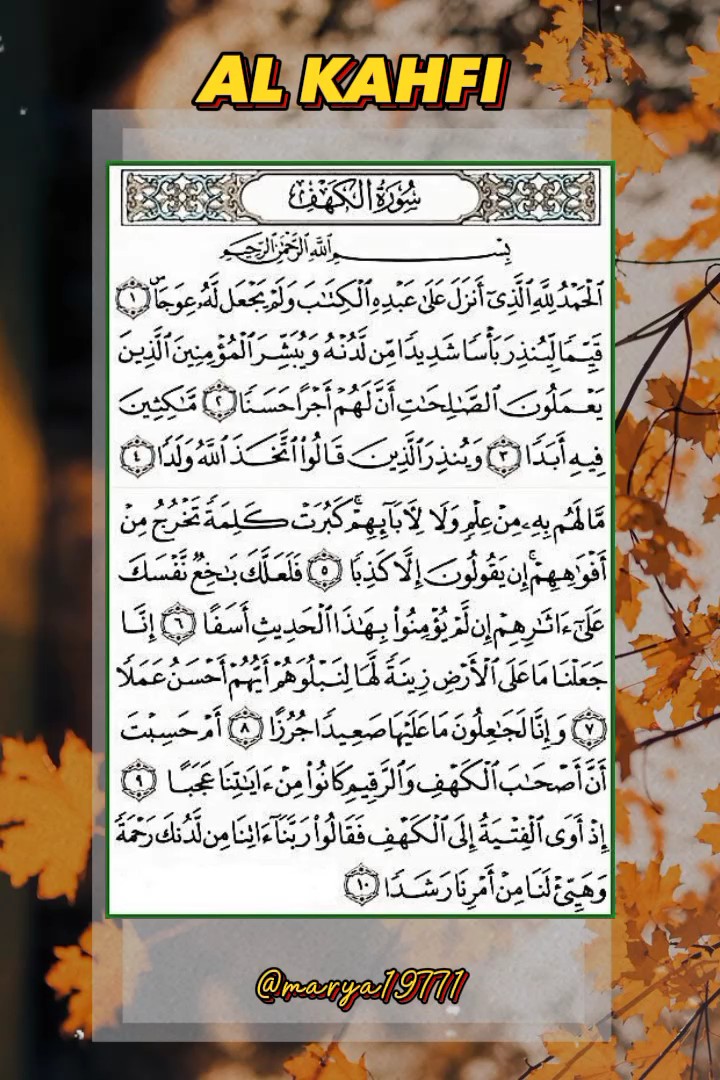 AL KAHFI
سُورَةُ الكَهْفِ
بِسْمِ اللَّهِ الرَّحْمَٰنِ الرَّحِيمِ
الْحَمْدُ لِلَّهِ الَّذِي أَنزَلَ عَلَىٰ عَبْدِهِ الْكِتَابَ وَلَمْ يَجْعَل لَّهُ عِوَجًا ۜ ١
قَيِّمًا لِّيُنذِرَ بَأْسًا شَدِيدًا مِّن لَّدُنْهُ وَيُبَشِّرَ الْمُؤْمِنِينَ الَّذِينَ
يَعْمَلُونَ الصَّالِحَاتِ أَنَّ لَهُمْ أَجْرًا حَسَنًا ٢ مَّاكِثِينَ
فِيهِ أَبَدًا ٣ وَيُنذِرَ الَّذِينَ قَالُوا اتَّخَذَ اللَّهُ وَلَدًا ٤
مَّا لَهُم بِهِ مِنْ عِلْمٍ وَلَا لِآبَائِهِمْ ۚ كَبُرَتْ كَلِمَةً تَخْرُجُ مِنْ
أَفْوَاهِهِمْ ۚ إِن يَقُولُونَ إِلَّا كَذِبًا ٥ فَلَعَلَّكَ بَاخِعٌ نَّفْسَكَ
عَلَىٰ ءَاثَارِهِمْ إِن لَّمْ يُؤْمِنُوا بِهَٰذَا الْحَدِيثِ أَسَفًا ٦ إِنَّا
جَعَلْنَا مَا عَلَى الْأَرْضِ زِينَةً لَّهَا لِنَبْلُوَهُمْ أَيُّهُمْ أَحْسَنُ عَمَلًا
٧ وَإِنَّا لَجَاعِلُونَ مَا عَلَيْهَا صَعِيدًا جُرُزًا ٨ أَمْ حَسِبْتَ
أَنَّ أَصْحَابَ الْكَهْفِ وَالرَّقِيمِ كَانُوا مِنْ ءَايَاتِنَا عَجَبًا ٩
إِذْ أَوَى الْفِتْيَةُ إِلَى الْكَهْفِ فَقَالُوا رَبَّنَا ءَاتِنَا مِن لَّدُنكَ رَحْمَةً
وَهَيِّئْ لَنَا مِنْ أَمْرِنَا رَشَدًا ١٠
@marya19771